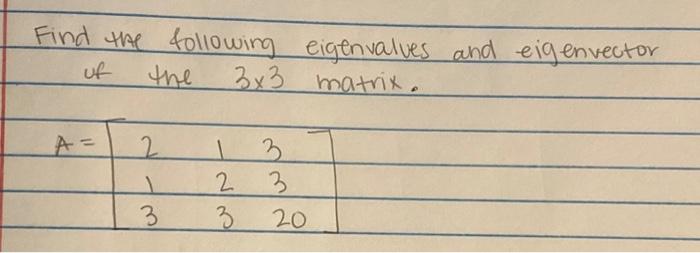 Find the following eigenvalues and eigenvector
of the 3x3 matrix.
A = 2 1 3
1 2 3
3 3 20